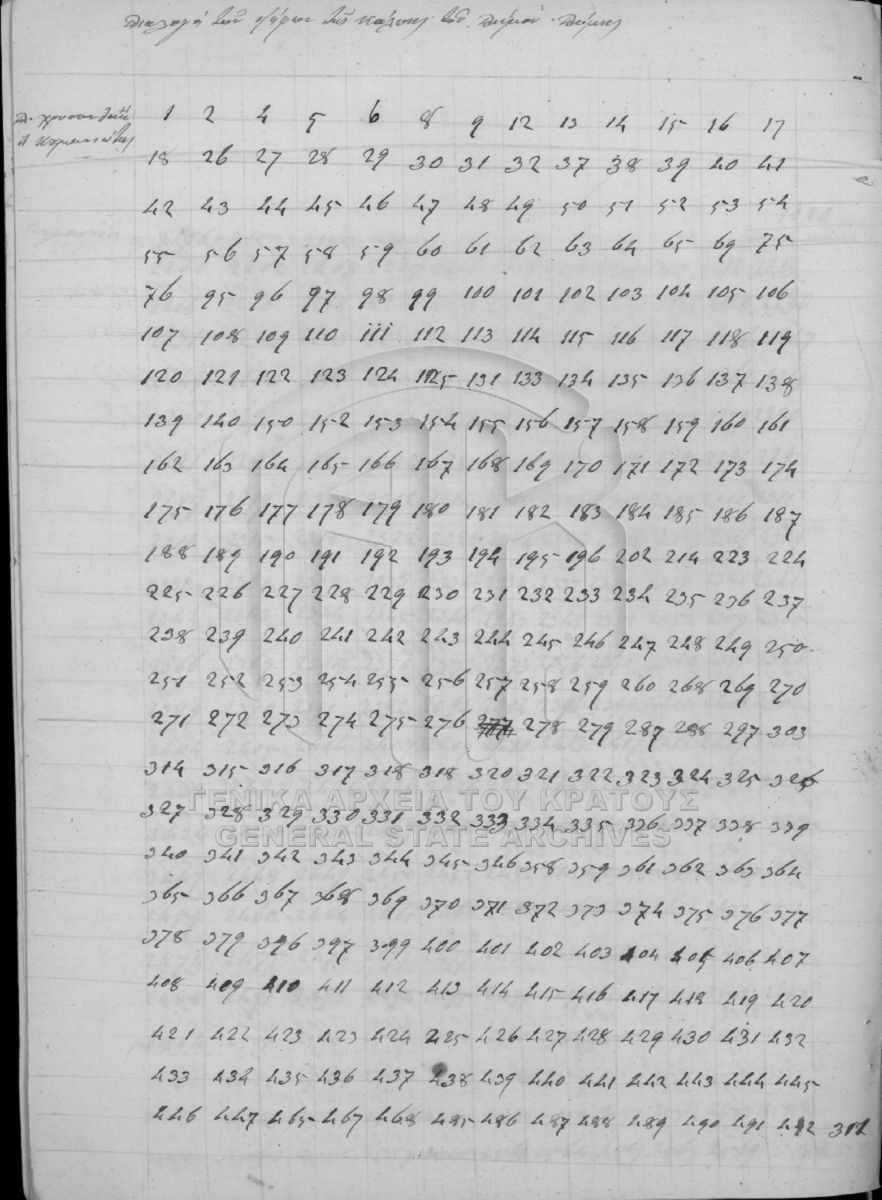 Διαλογὴ τῶν ψήφων τῆς κάλπης τοῦ Δήμου Δύμης
1 2 4 5 6 8 9 12 13 14 15 16 17
18 26 27 28 29 30 31 32 37 38 39 40 41
42 43 44 45 46 47 48 49 50 51 52 53 54
55 56 57 58 59 60 61 62 63 64 65 69 75
76 95 96 97 98 99 100 101 102 103 104 105 106
107 108 109 110 111 112 113 114 115 116 117 118 119
120 121 122 123 124 125 131 133 134 135 136 137 138
139 140 150 152 153 154 155 156 157 158 159 160 161
162 163 164 165 166 167 168 169 170 171 172 173 174
175 176 177 178 179 180 181 182 183 184 185 186 187
188 189 190 191 192 193 194 195 196 202 214 223 224
225 226 227 228 229 230 231 232 233 234 235 236 237
238 239 240 241 242 243 244 245 246 247 248 249 250
251 252 253 254 255 256 257 258 259 260 268 269 270
271 272 273 274 275 276 277 278 279 287 288 297 303
314 315 316 317 318 318 320 321 322 323 324 325 326
ΓΕΝΙΚΑ ΑΡΧΕΙΑ ΤΟΥ ΚΡΑΤΟΥΣ
327 328 329 330 331 332 333 334 335 336 337 338 339
GENERAL STATE ARCHIVES
340 341 342 343 344 345 346 358 359 361 362 363 364
365 366 367 368 369 370 371 372 373 374 375 376 377
378 379 396 397 399 400 401 402 403 404 405 406 407
408 409 410 411 412 413 414 415 416 417 418 419 420
421 422 423 423 424 425 426 427 428 429 430 431 432
433 434 435 436 437 438 439 440 441 442 443 444 445
446 447 465 467 468 485 486 487 488 489 490 491 492